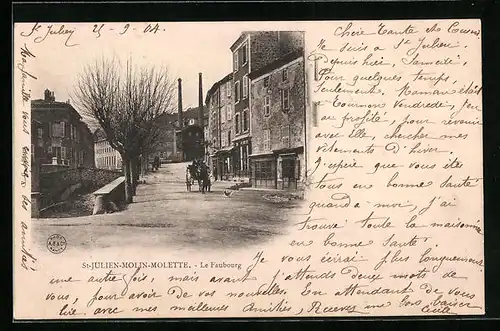 St Julien 25-9-04.
Chère Tante et Cousine
Je suis à St Julien
Depuis hier, Samedi,
Pour quelques temps,
Seulement. Maman étais
à Tournon Vendredi, j'en
ai profité, pour revenir
avec elle, chercher mes
vêtements d'hiver.
J'espère que vous êtes
tous en bonne santé
quand à moi, j'ai
trouvé toute la maisonnée
en bonne santé.
Je vous écrirai plus longuement
une autre fois, mais avant j'attends deux mots de
vous, pour avoir de vos nouvelles. En attendant de vous
lire avec mes meilleures Amitiés, Recevez mes bons Baisers
Cécile
vous envoie ses amitiés
St-JULIEN-MOLIN-MOLETTE. - Le Faubourg